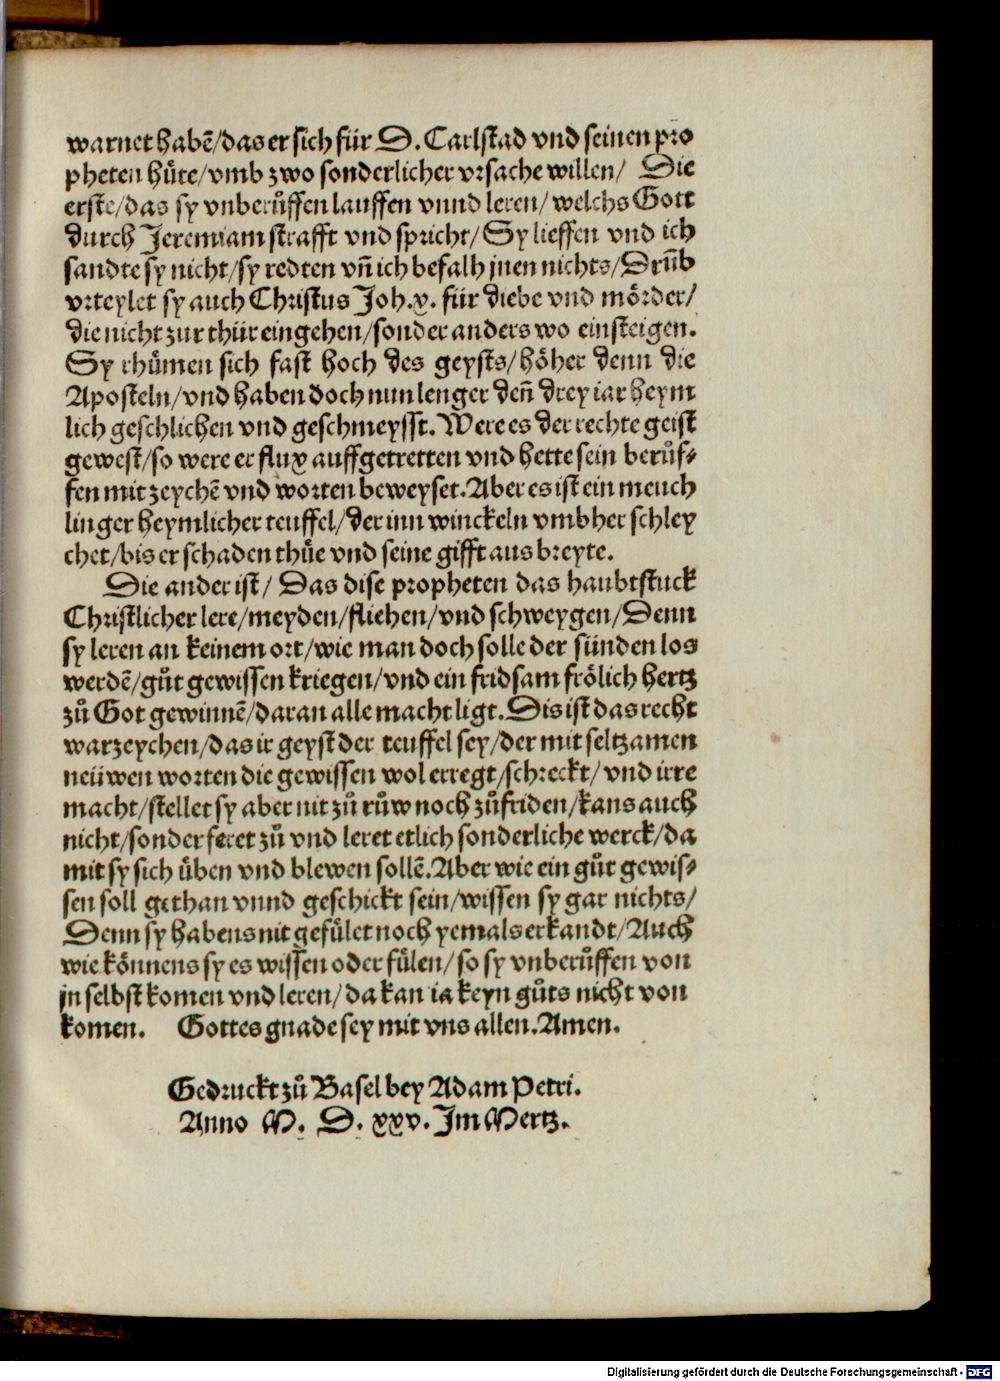 warnet habē/das er sich für D. Carlstad vnd seinen pro
pheten hüte/vmb zwo sonderlicher vrsache willen/ Die
erste/das sy vnberůffen lauffen vnnd leren/welchs Gott
durch Jeremiam strafft vnd spricht/Sy lieffen vnd ich
sandte sy nicht/sy redten vn̄ ich befalh jnen nichts/Drūb
vrteylet sy auch Christus Joh.x. für diebe vnd mörder/
die nicht zur thür eingehen/sonder anders wo einsteigen.
Sy rhümen sich fast hoch des geysts/höher denn die
Aposteln/vnd haben doch nun lenger den̄ drey iar heym
lich geschlichen vnd geschmeysst. Were es der rechte geist
gewest/so were er flux auffgetretten vnd hette sein berůf⸗
fen mit zeychē vnd worten beweyset. Aber es ist ein meuch
linger heymlicher teuffel/der inn winckeln vmbher schley
chet/bis er schaden thüe vnd seine gifft aus breyte.
Die ander ist/ Das dise propheten das haubtstuck
Christlicher lere/meyden/fliehen/vnd schweygen/Denn
sy leren an keinem ort/wie man doch solle der sünden los
werdē/gůt gewissen kriegen/vnd ein fridsam frölich hertz
zů Got gewinnē/daran alle macht ligt. Dis ist das recht
warzeychen/das ir geyst der teuffel sey/der mit seltzamen
neüwen worten die gewissen wol erregt/schreckt/vnd irre
macht/stellet sy aber nit zů růw noch zůfriden/kans auch
nicht/sonder feret zů vnd leret etlich sonderliche werck/da
mit sy sich üben vnd blewen sollē. Aber wie ein gůt gewis⸗
sen soll gethan vnnd geschickt sein/wissen sy gar nichts/
Denn sy habens nit gefület noch yemals erkandt/Auch
wie könnens sy es wissen oder fülen/so sy vnberůffen von
jn selbst komen vnd leren/da kan ia keyn gůts nicht von
komen. Gottes gnade sey mit vns allen. Amen.
Gedruckt zů Basel bey Adam Petri.
Anno M. D. xxv. Im Mertz.
Digitalisierung gefördert durch die Deutsche Forschungsgemeinschaft - DFG